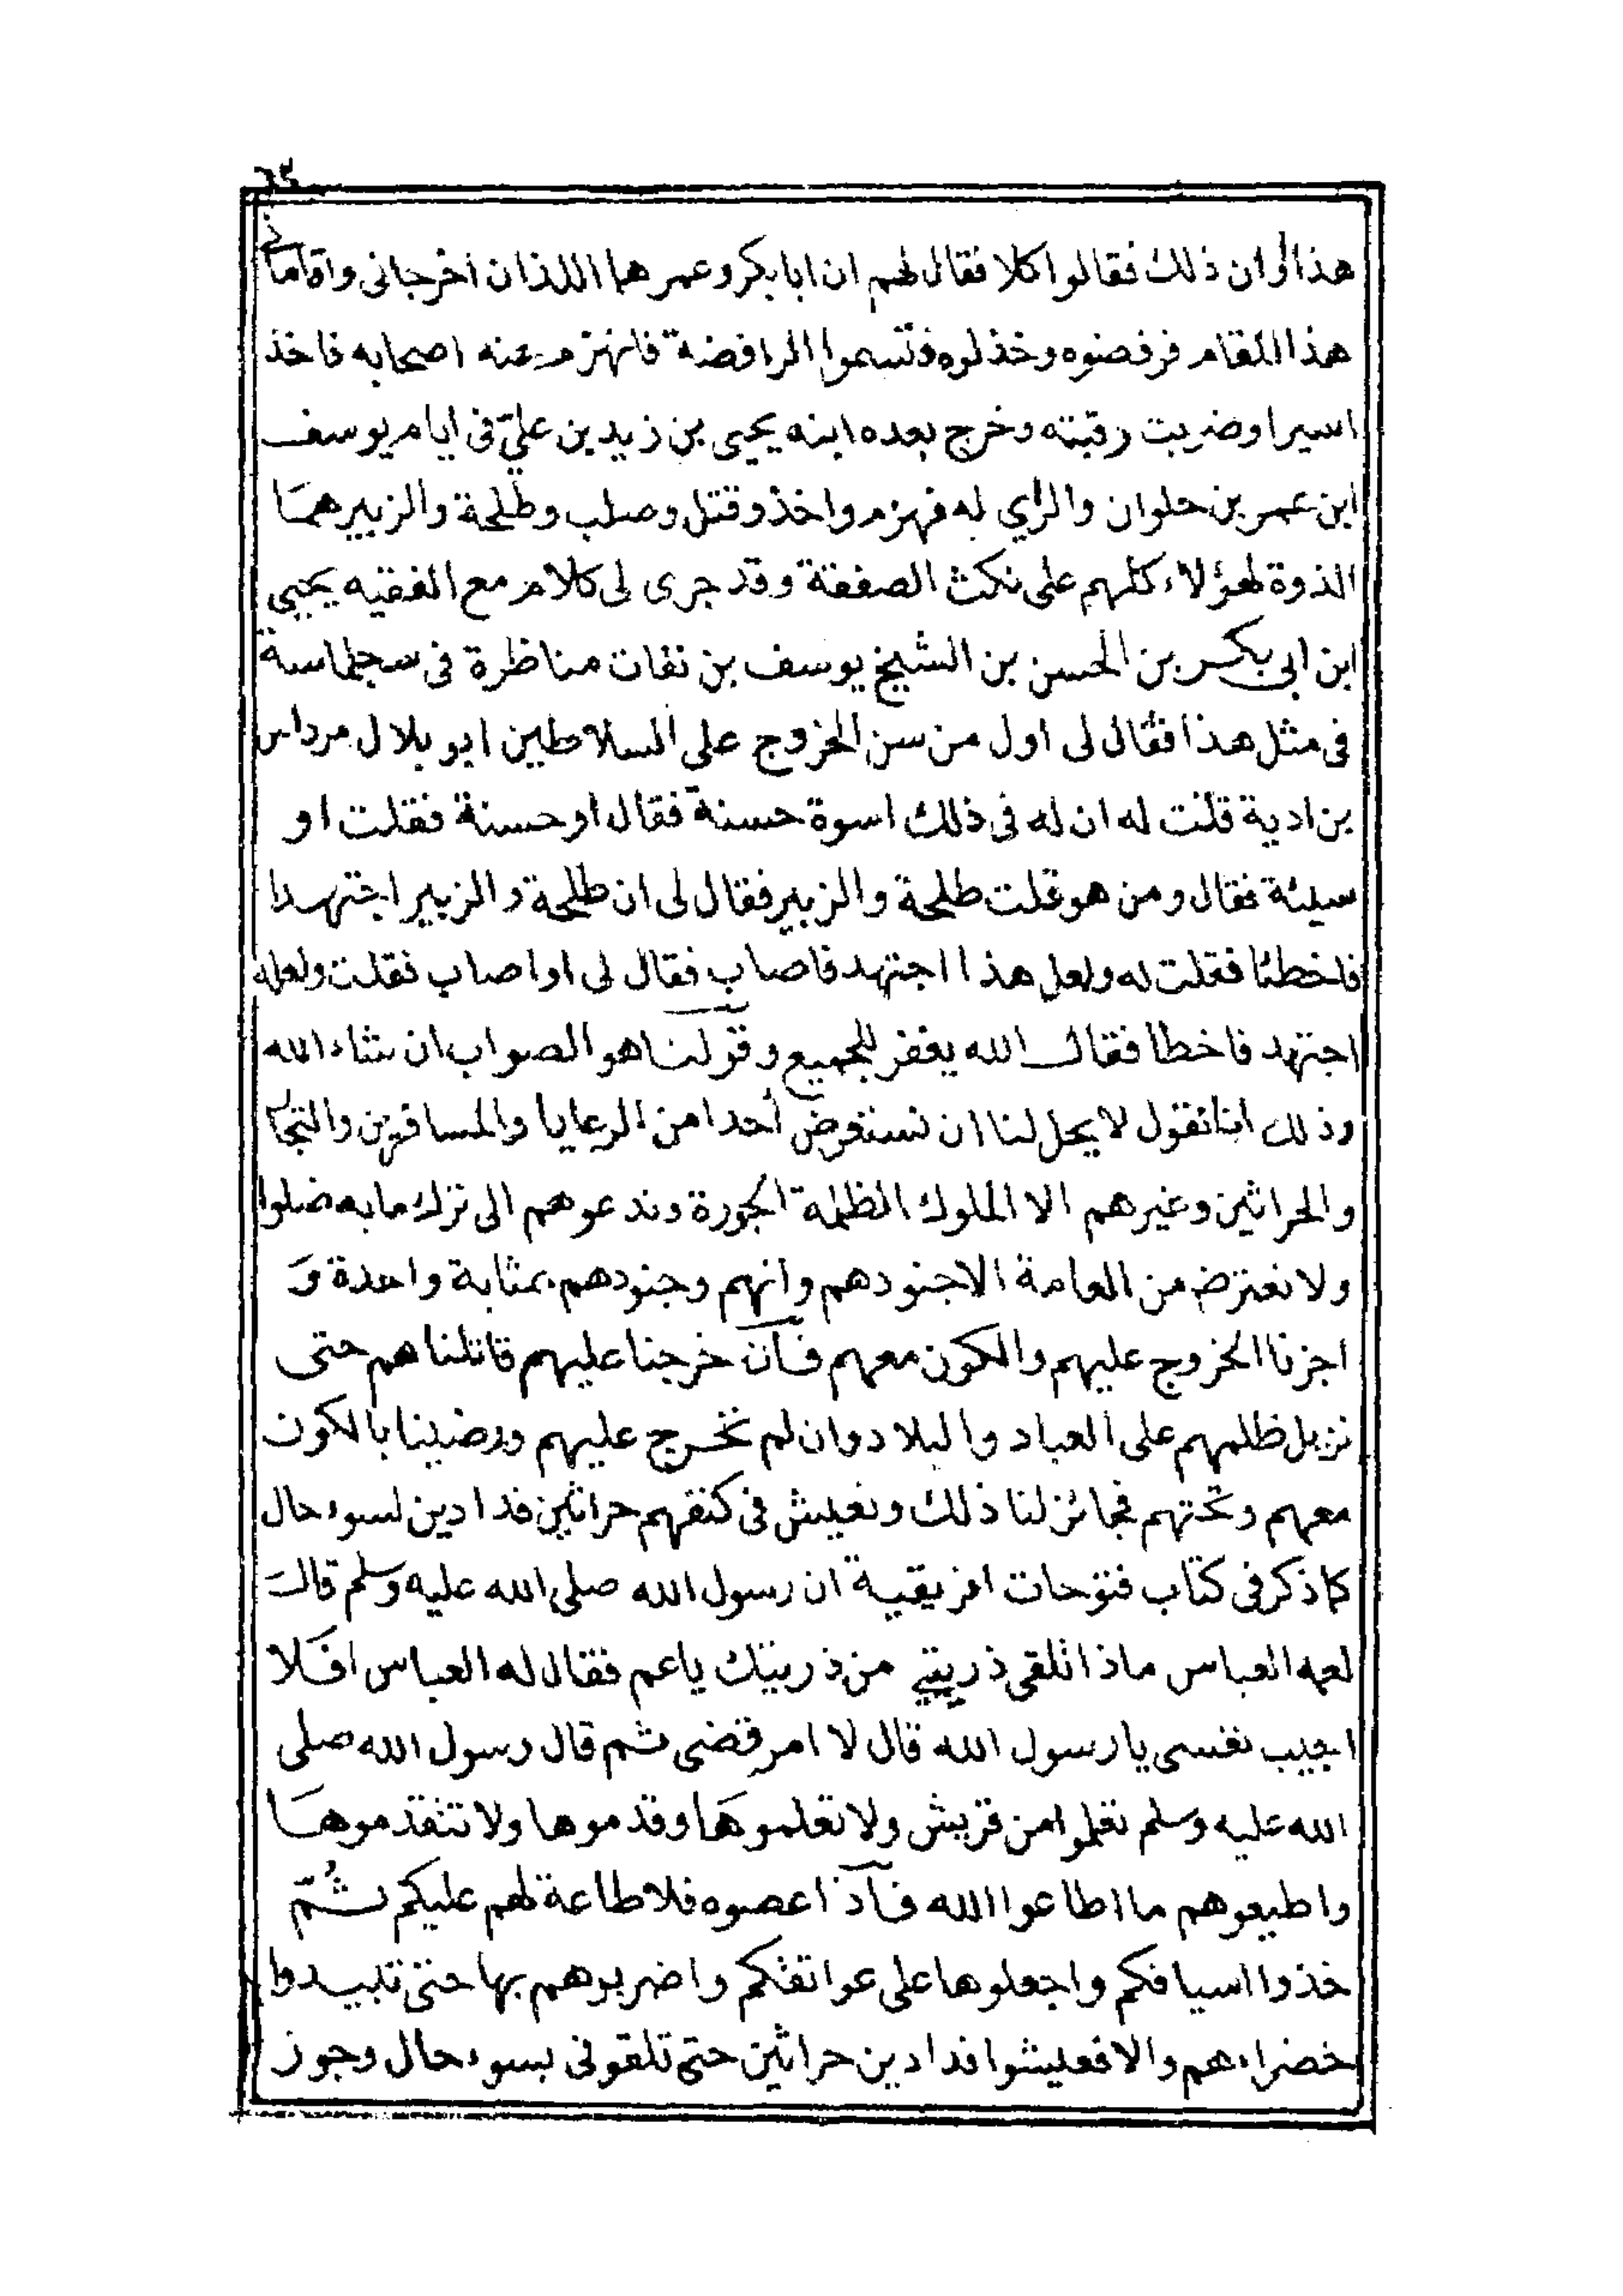 ٦٤
هذا اوان ذلك فقالوا كلا فقال لهم ان ابا بكر وعمر هما اللذان اخرجانى واقامانى
هذا المقام فرفضوه وخذلوه فتسموا الرافضة فانهزم عنه اصحابه فاخذ
اسيرا وضربت رقبته وخرج بعده ابنه يحيى بن زيد بن عليّ فى ايام يوسف
ابن عمر بن حلوان والرأي له فهزم واخذ وقتل وصلب وطلحة والزبير همَا
الذوة لهؤلاء كلهم على نكث الصفقة وقد جرى لى كلام مع الفقيه يحيي
ابن ابى بكر بن الحسن بن الشيخ يوسف بن نفات مناظرة فى سجلماسة
فى مثل هذا فقال لى اول من سن الخروج على السلاطين ابو بلال مرداس
بن ادية قلت له ان له فى ذلك اسوة حسنة فقال او حسنة فقلت او
سيئة فقال ومن هو قلت طلحة والزبير فقال لى ان طلحة والزبير اجتهدا
فاخطئا فقلت له ولعل هذا اجتهد فاصاب فقال لى او اصاب فقلت ولعله
اجتهد فاخطا فقال الله يغفر للجميع وقولنا هو الصواب ان شاء الله
وذلك اننا نقول لا يحل لنا ان نستعرض أحدا من الرعايا والمسافرين والتجار
والحراثين وغيرهم الا الملوك الظلمة الجورة وندعوهم الى ترك ما به ضلوا
ولا نعترض من العامة الا جنودهم وانهم وجنودهم بمثابة واحدة وَ
اجزنا الخروج عليهم والكون معهم فان خرجنا عليهم قاتلناهم حتى
نزيل ظلمهم على العباد والبلاد وان لم نخرج عليهم ورضينا بالكون
معهم وتحتهم فجائز لنا ذلك ونعيش فى كنفهم حراثين فدادين لسوء حال
كما ذكر فى كتاب فتوحات افريقية ان رسول الله صلى الله عليه وسلم قال
لعمه العباس ماذا تلقى ذريتي من ذريتك ياعم فقال له العباس افلا
اجبب نفسى يا رسول الله قال لا امر قضى ثم قال رسول الله صلى
الله عليه وسلم تعلموا من قريش ولا تعلموهَا وقدموها ولا تتقدموهَا
واطيعوهم ما اطاعوا الله فاذا عصوه فلا طاعة لهم عليكم ثُمّ
خذوا اسيافكم واجعلوها على عواتقكم واضربوهم بها حتى تبيدوا
خضراءهم والا فعيشوا فدادين حراثين حتى تلقونى بسوء حال وجوز